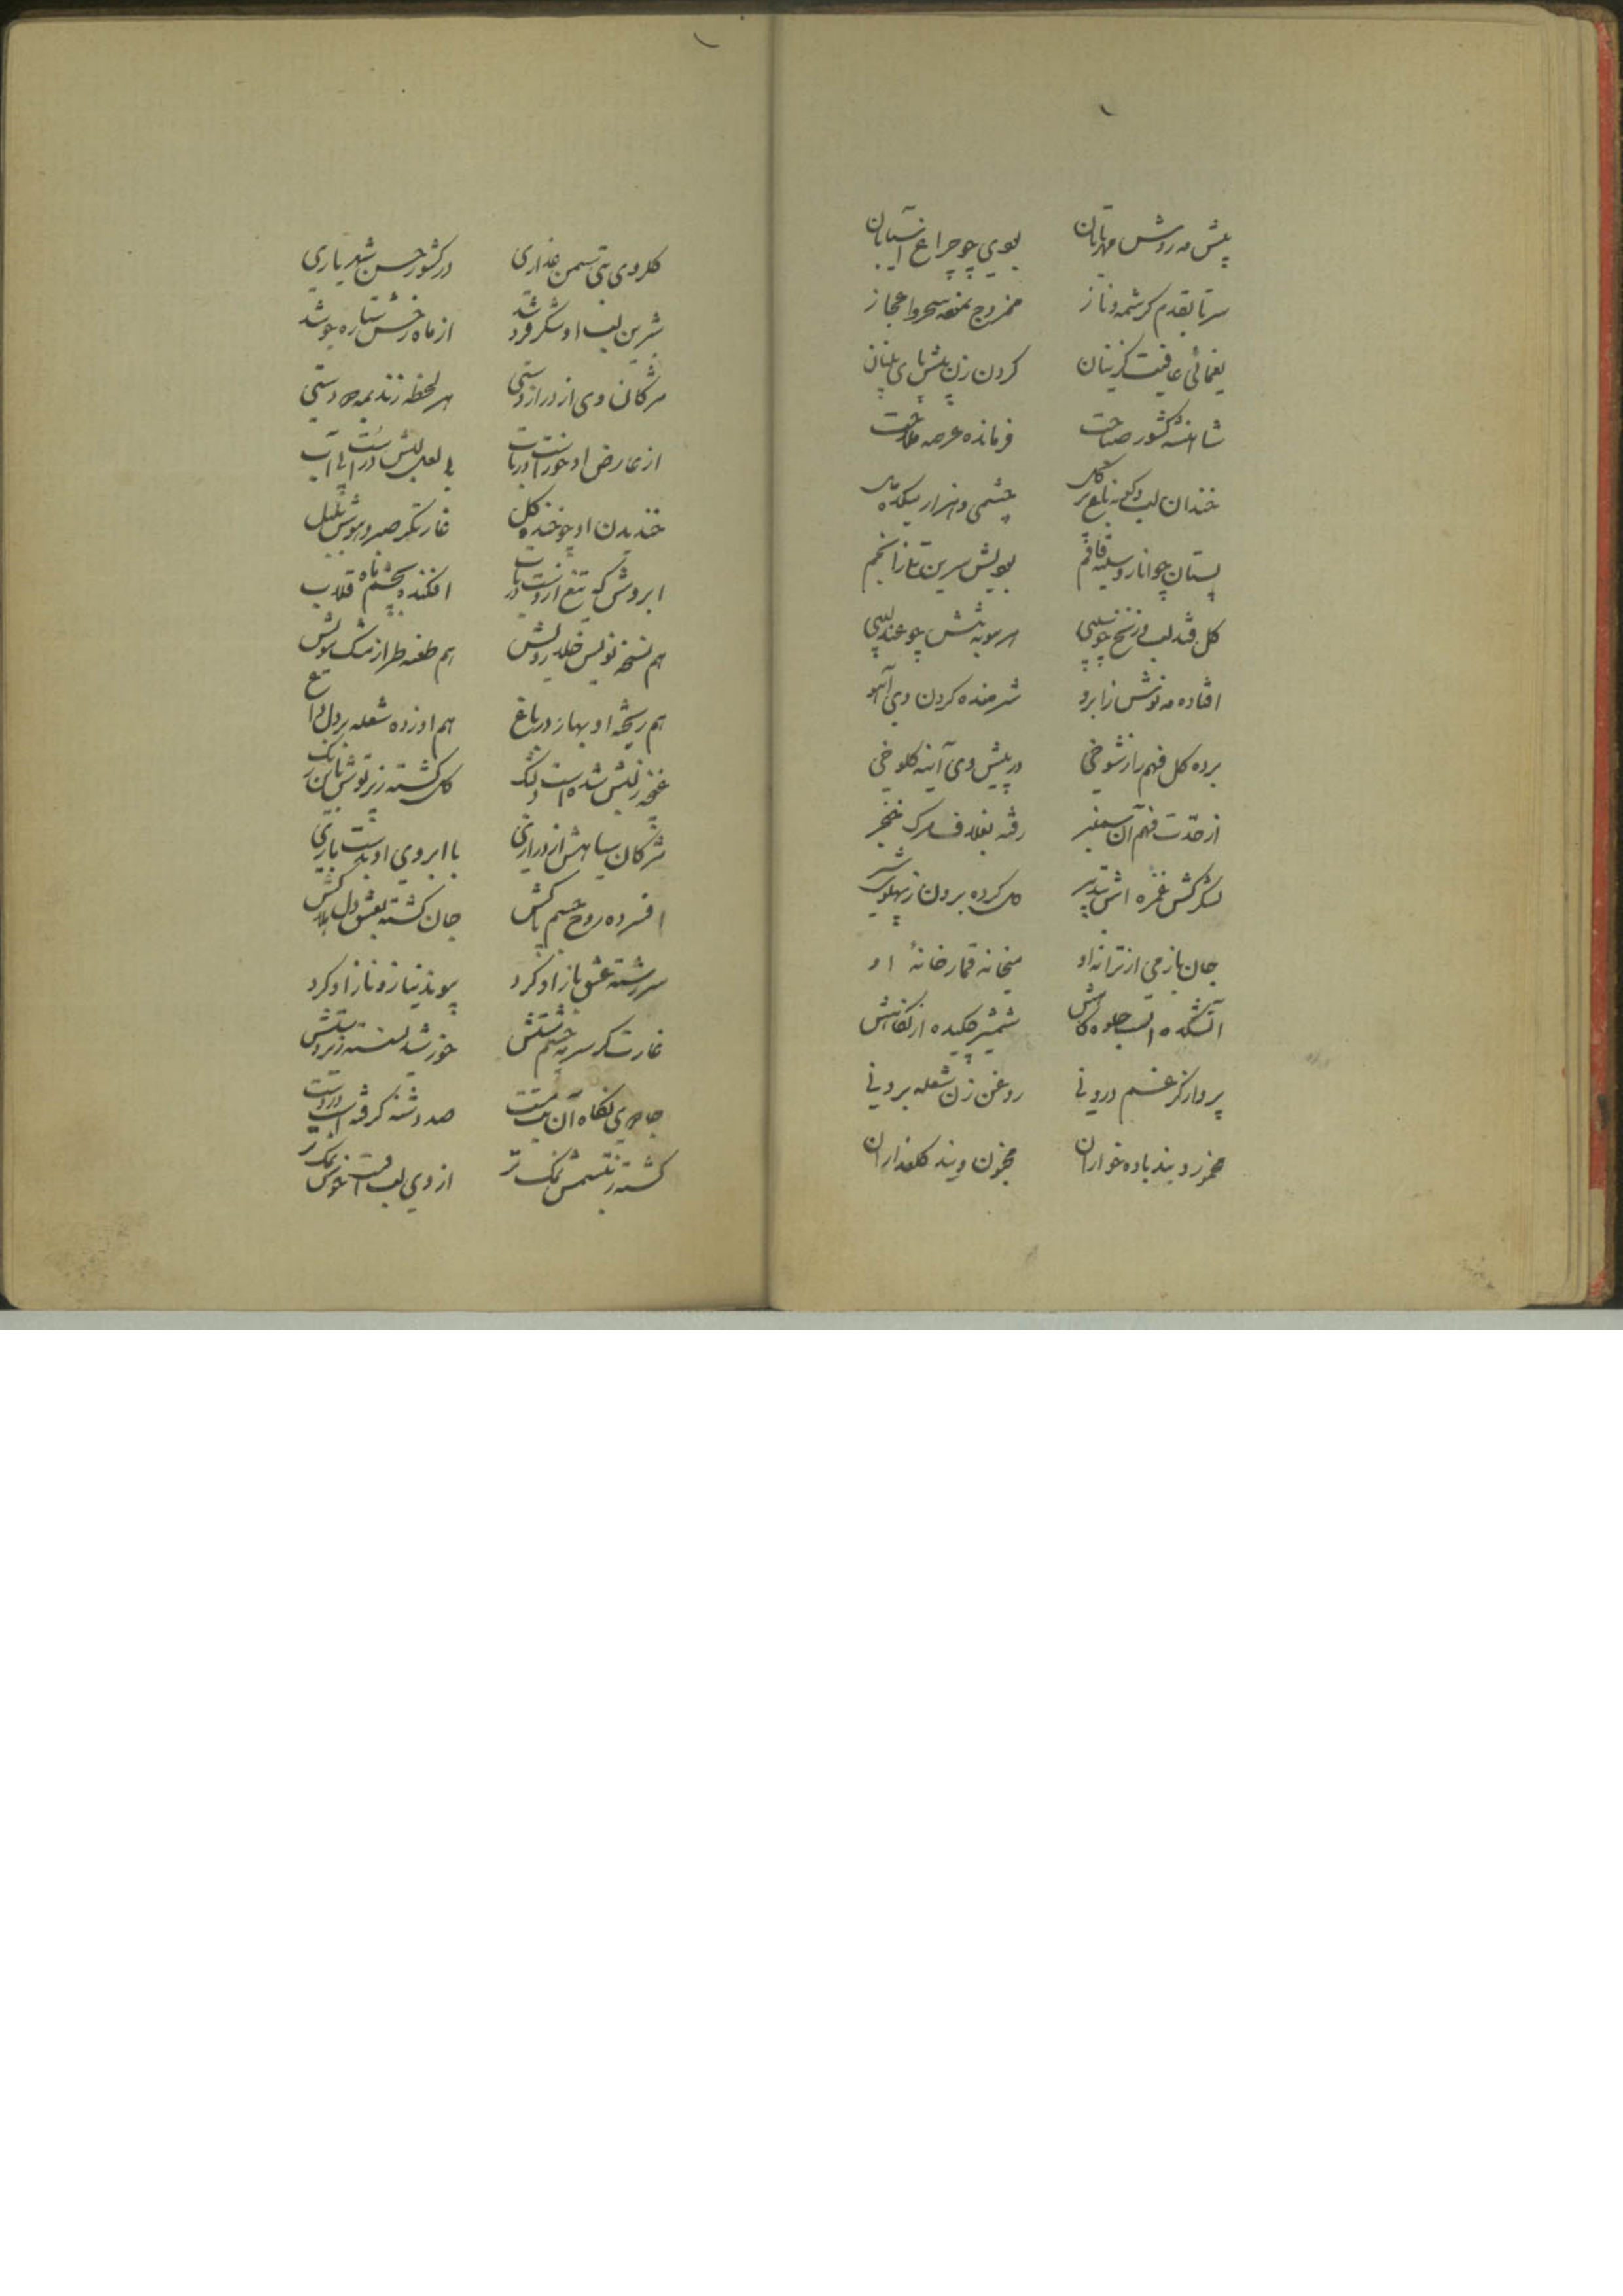 پیش مه روش مهر تابان بودی چو چراغ آسیابان
سرتا بقدم کرشمه و ناز ممزوج بغمزه سحر و اعجاز
یغمائی عافیت گزینان گردن زن پیش
شاهنشه کشور صباحت فرمانده عرصه ملاحت
خندان لب چشمی و هزار میکده
پستان چو انار و سینه قاقم
گل قند لب چو سیبی هر مو به تنش چو عندلیبی
افتاده مه نوش ز ابرو شرمنده کردن وی آهو
برده گل فهم را ز شوخی در پیش وی آینه کلوخی
از حدت فهم آن سمنبر رفته بغلاف مرگ خنجر
لشکرکش غمزه اش بتدبیر دل کرده برون ز پهلوی شیر
جان بازمی از ترانه او میخانه قمارخانهٔ او
آتشکده است جلوه گاهش شمشیر چکیده از نگاهش
پرداز گر غم درونی روغن زن شعله برونی
مخمور ویند باده خواران مجنون ویند گلعذاران
گلروی بتی سمن عذاری در کشور حسن شهریاری
شیرین لب او شکر فرو شد از ماه رخش ستاره جوشد
مژگان وی از دراز دستی هر لحظه زند بهم دو دستی
از عارض او خور است در تاب بی لعل لبش در است بی آب
خندیدن او چو خنده گل غارتگر صبر و هوش بلبل
ابروش که تیغ ازوست در تاب افکنده بچشم ماه قلاب
هم نسخه نویس خلد رویش هم طعنه طراز مشک مویش
هم ریخته او بهار در باغ هم او زده شعله بر دل داغ
غنچه ز لبش شده است دلتنگ گل گشته ز پرتوش
مژگان سیاهش از درازی با ابروی او بدست بازی
افسرده روح جسم جان گشته بعشق دل
سررشته عشق باز او کرد پیوند نیاز و ناز او کرد
غارتگر سرمه چشم مستش خورشید نشسته زیر دستش
جادوی نگاه آن صد دشنه گرفته است در دست
گشته ز تبسمش نمک تر از وی لب